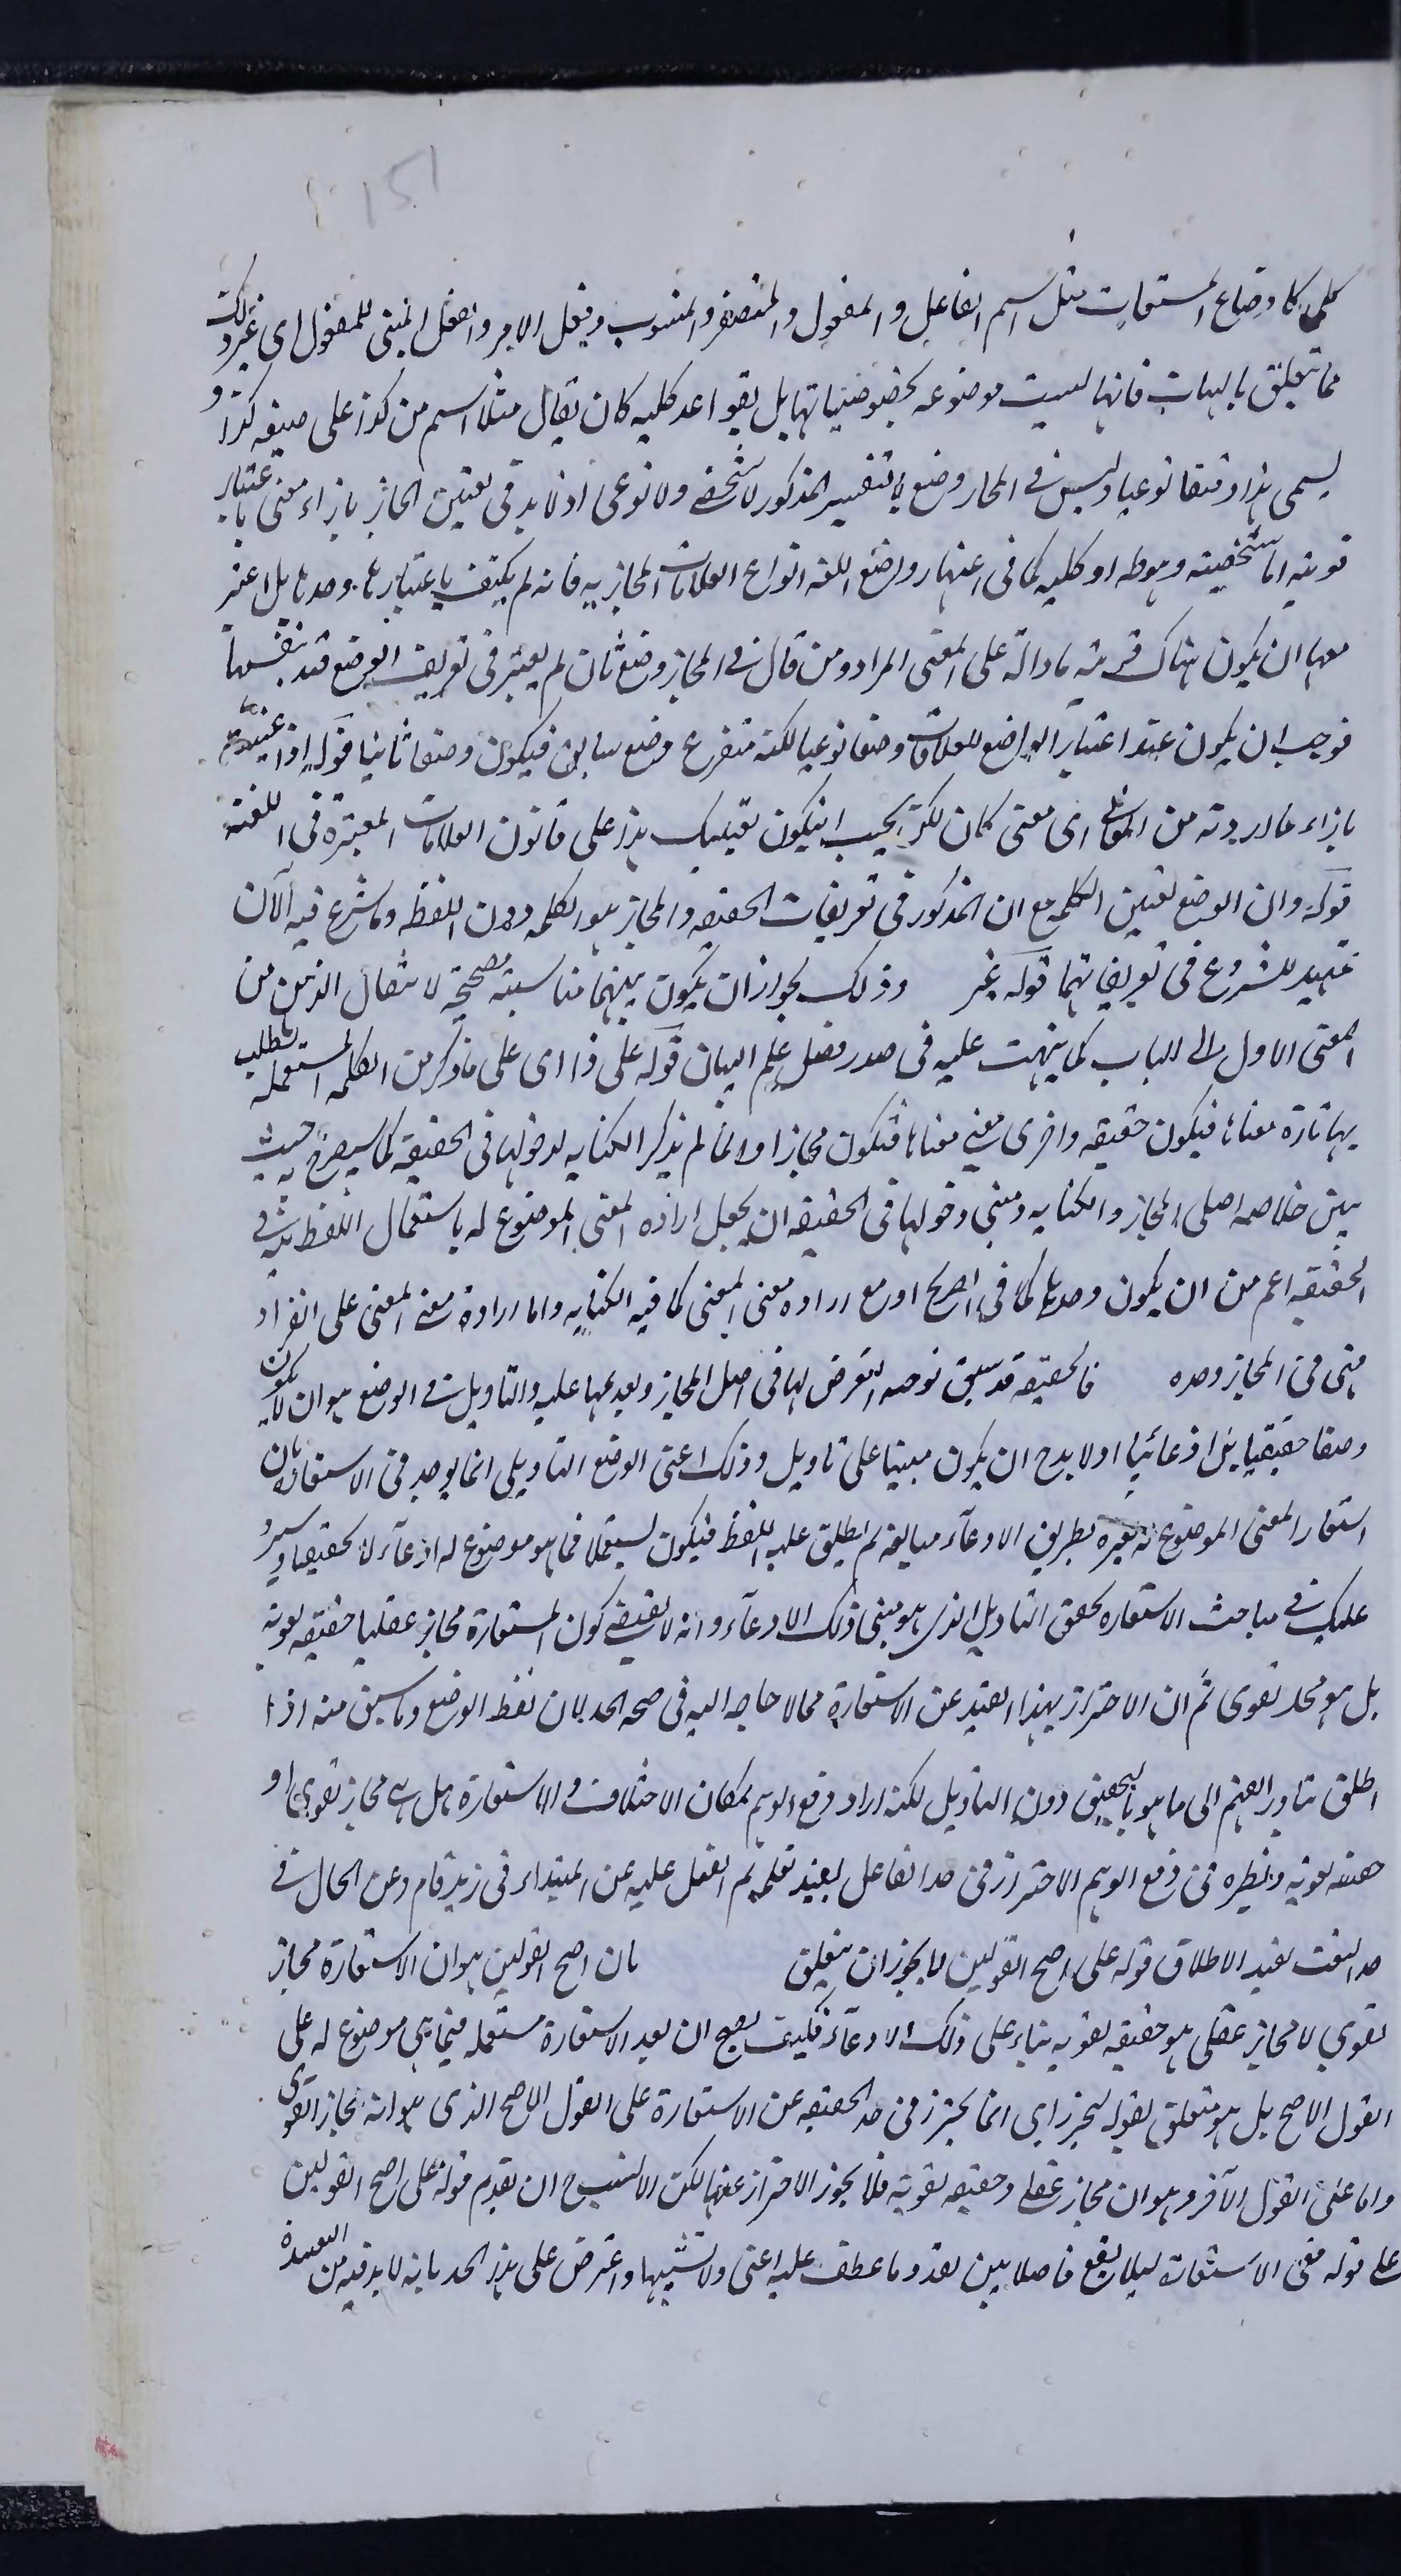 151
كلى كاوضاع المشتقات مثل اسم الفاعل و المفعول والمصغر والمنسوب وفعل الامر والفعل المبنى للمفعول الى غير ذلك
مما يتعلق بالهيات فانها ليست موضوعه بخصوصياتها بل بقواعد كليه كان يقال مثلا اسم من كذا على صيغه كذا و
يسمى هذا وضعا نوعيا وليس فى المجاز وضع بالتفسير المذكور لا شخصى ولا نوعى اذ لا بد فى تعيين المجاز بازاء معنى باعتبار
قرينه اما شخصيته وهو ظ او كليه كما فى اعتبار واضع اللغه انواع العلاقات المجازيه فانه لم يكتف باعتبارها وحدها بل اعتبر
معها ان يكون هناك قرينه ما دالة على المعنى المراد ومن قال فى المجاز وضع ثان لم يعتبر فى تعريف الوضع قيد بنفسها
فوجب ان يكون عنده اعتبار الواضع للعلاقات وضعا نوعيا لكنه متفرع وضع سابق فيكون وضعا ثانيا قوله اذا عينت
بازاء ما اردته من المعانى اى معنى كان لكن يجب ان يكون تعيينك هذا على قانون العلاقات المعتبره فى اللغة
قوله وان الوضع تعيين الكلمه مع ان المذكور فى تعريفات الحقيقه والمجاز هو الكلمه دون اللفظ وما شرع فيه الآن
تمهيد للشروع فى تعريفاتهما قوله غير وذلك لجواز ان يكون بينهما مناسبته مصححة لانتقال الذهن من
المعنى الاول الى الباب كما نبهت عليه فى صدر فصل علم البيان قوله على ذا اى على ما ذكر من الكلمه المستعمله تطلب
بها تارة معناها فيكون حقيقه واخرى معنى معناها فتكون مجازا وانما لم يذكر الكنايه لدخولها فى الحقيقه كما سيصرح به حيث
يبين خلاصه اصلى المجاز والكنايه ومبنى دخولها فى الحقيقه ان يجعل اراده المعنى الموضوع له باستعمال اللفظ فيه فى
الحقيقه اعم من ان يكون وحدها كما فى الصريح او مع اراده معنى المعنى كما فيه الكنايه واما ارادة معنى المعنى على انفراد
فهى فى المجاز وحده فالحقيقه قد سبق توجه التعرض لها فى اصل المجاز وتقديمها عليه والتاويل فى الوضع هو ان لا يكون
وضعا حقيقيا بل ادعائيا اولا بدح ان يكون مبينا على تاويل وذلك اعنى الوضع التاويلى انما يوجد فى الاستعاره بان
استعار المعنى الموضوع له لغيره بطريق الادعآء مبالغه ثم يطلق عليه اللفظ فيكون مستعملا فيما هو موضوع له ادعآء لا تحقيقا وسيرد
عليك فى مباحث الاستعاره تحقق التاويل الذى هو مبنى ذلك الادعآء وانه لا يقتضى كون المستعارة مجازا عقليا حقيقه لغويه
بل هو مجاز لغوى ثم ان الاحتراز بهذا القيد عن الاستعارة مما لا حاجه اليه فى صحه الحد لان لفظ الوضع وما سبق منه اذا
اطلق تبادر الفهم الى ما هو بالتحقيق دون التاويل لكنه اراد دفع الوهم لمكان الاختلاف فى الاستعارة هل هى مجاز لغوى او
حقيقه لغويه ونظيره فى دفع الوهم الاحتراز فى حد الفاعل بقيد تقديم الفعل عليه عن المبتداء فى زيد قام وعن الحال فى
حد النعت بقيد الاطلاق قوله على اصح القولين لا يجوز ان يتعلق بان اصح القولين هو ان الاستعارة مجاز
لغوى لا مجاز عقلى هو حقيقه لغويه بناء على ذلك الادعآء فكيف يصح ان يعد الاستعارة مستعمله فيما هى موضوع له على
القول الاصح بل هو متعلق بقوله ليحترز اى انما يحترز فى حد الحقيقه عن الاستعارة على القول الاصح الذى هو انه مجاز لغوى
واما على القول الآخر وهو ان مجاز عقلى وحقيقه لغويه فلا يجوز الاحتراز عنها لكن الانسب ح ان يقدم قوله على اصح القولين
على قوله ففى الاستعارة ليلا يقع فاصلا بين لعد وما عطف عليه اعنى ولا نسميها واعترض على هذا الحد بانه لا بد فيه من القيد